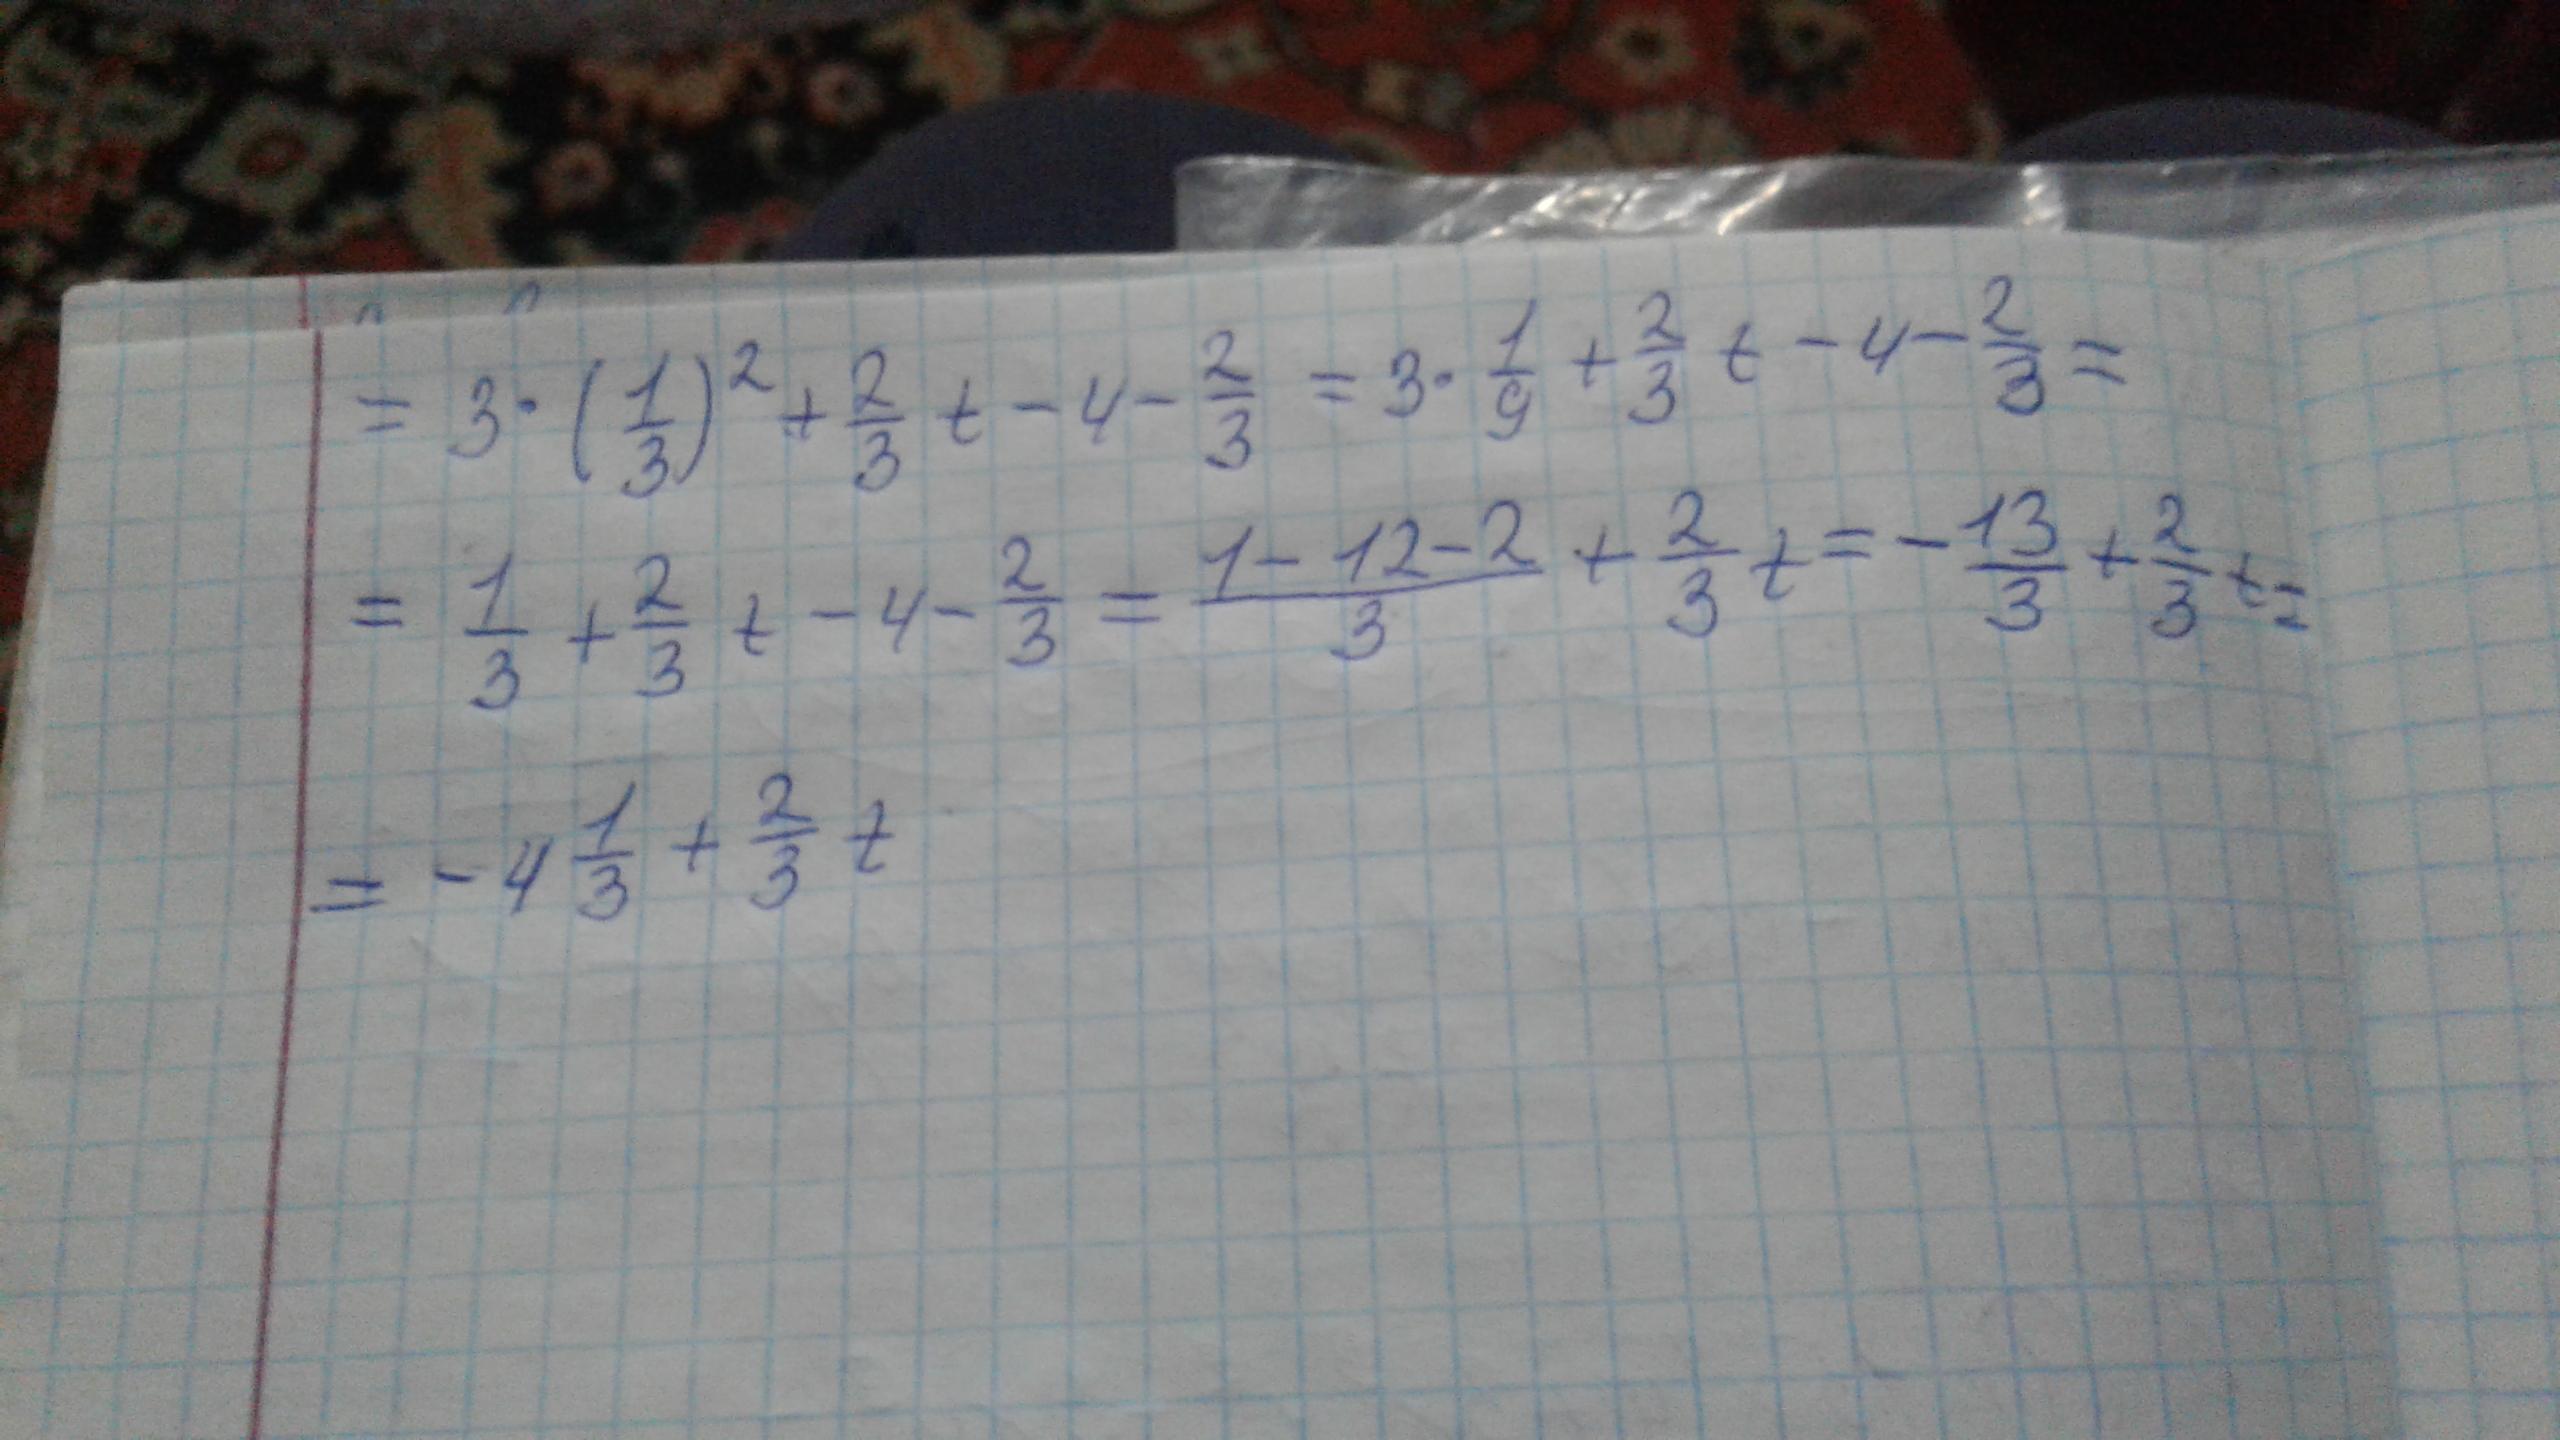 = 3·(1/3)² + 2/3 t - 4 - 2/3 = 3·1/9 + 2/3 t - 4 - 2/3 =
= 1/3 + 2/3 t - 4 - 2/3 = (1 - 12 - 2)/3 + 2/3 t = -13/3 + 2/3 t =
= -4 1/3 + 2/3 t